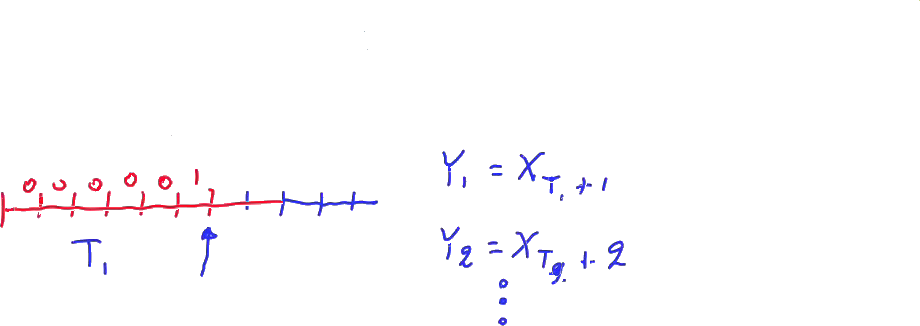 0 0 0 0 0 1
Y₁ = X_{T₁+1}
T₁
Y₂ = X_{T₂+2}